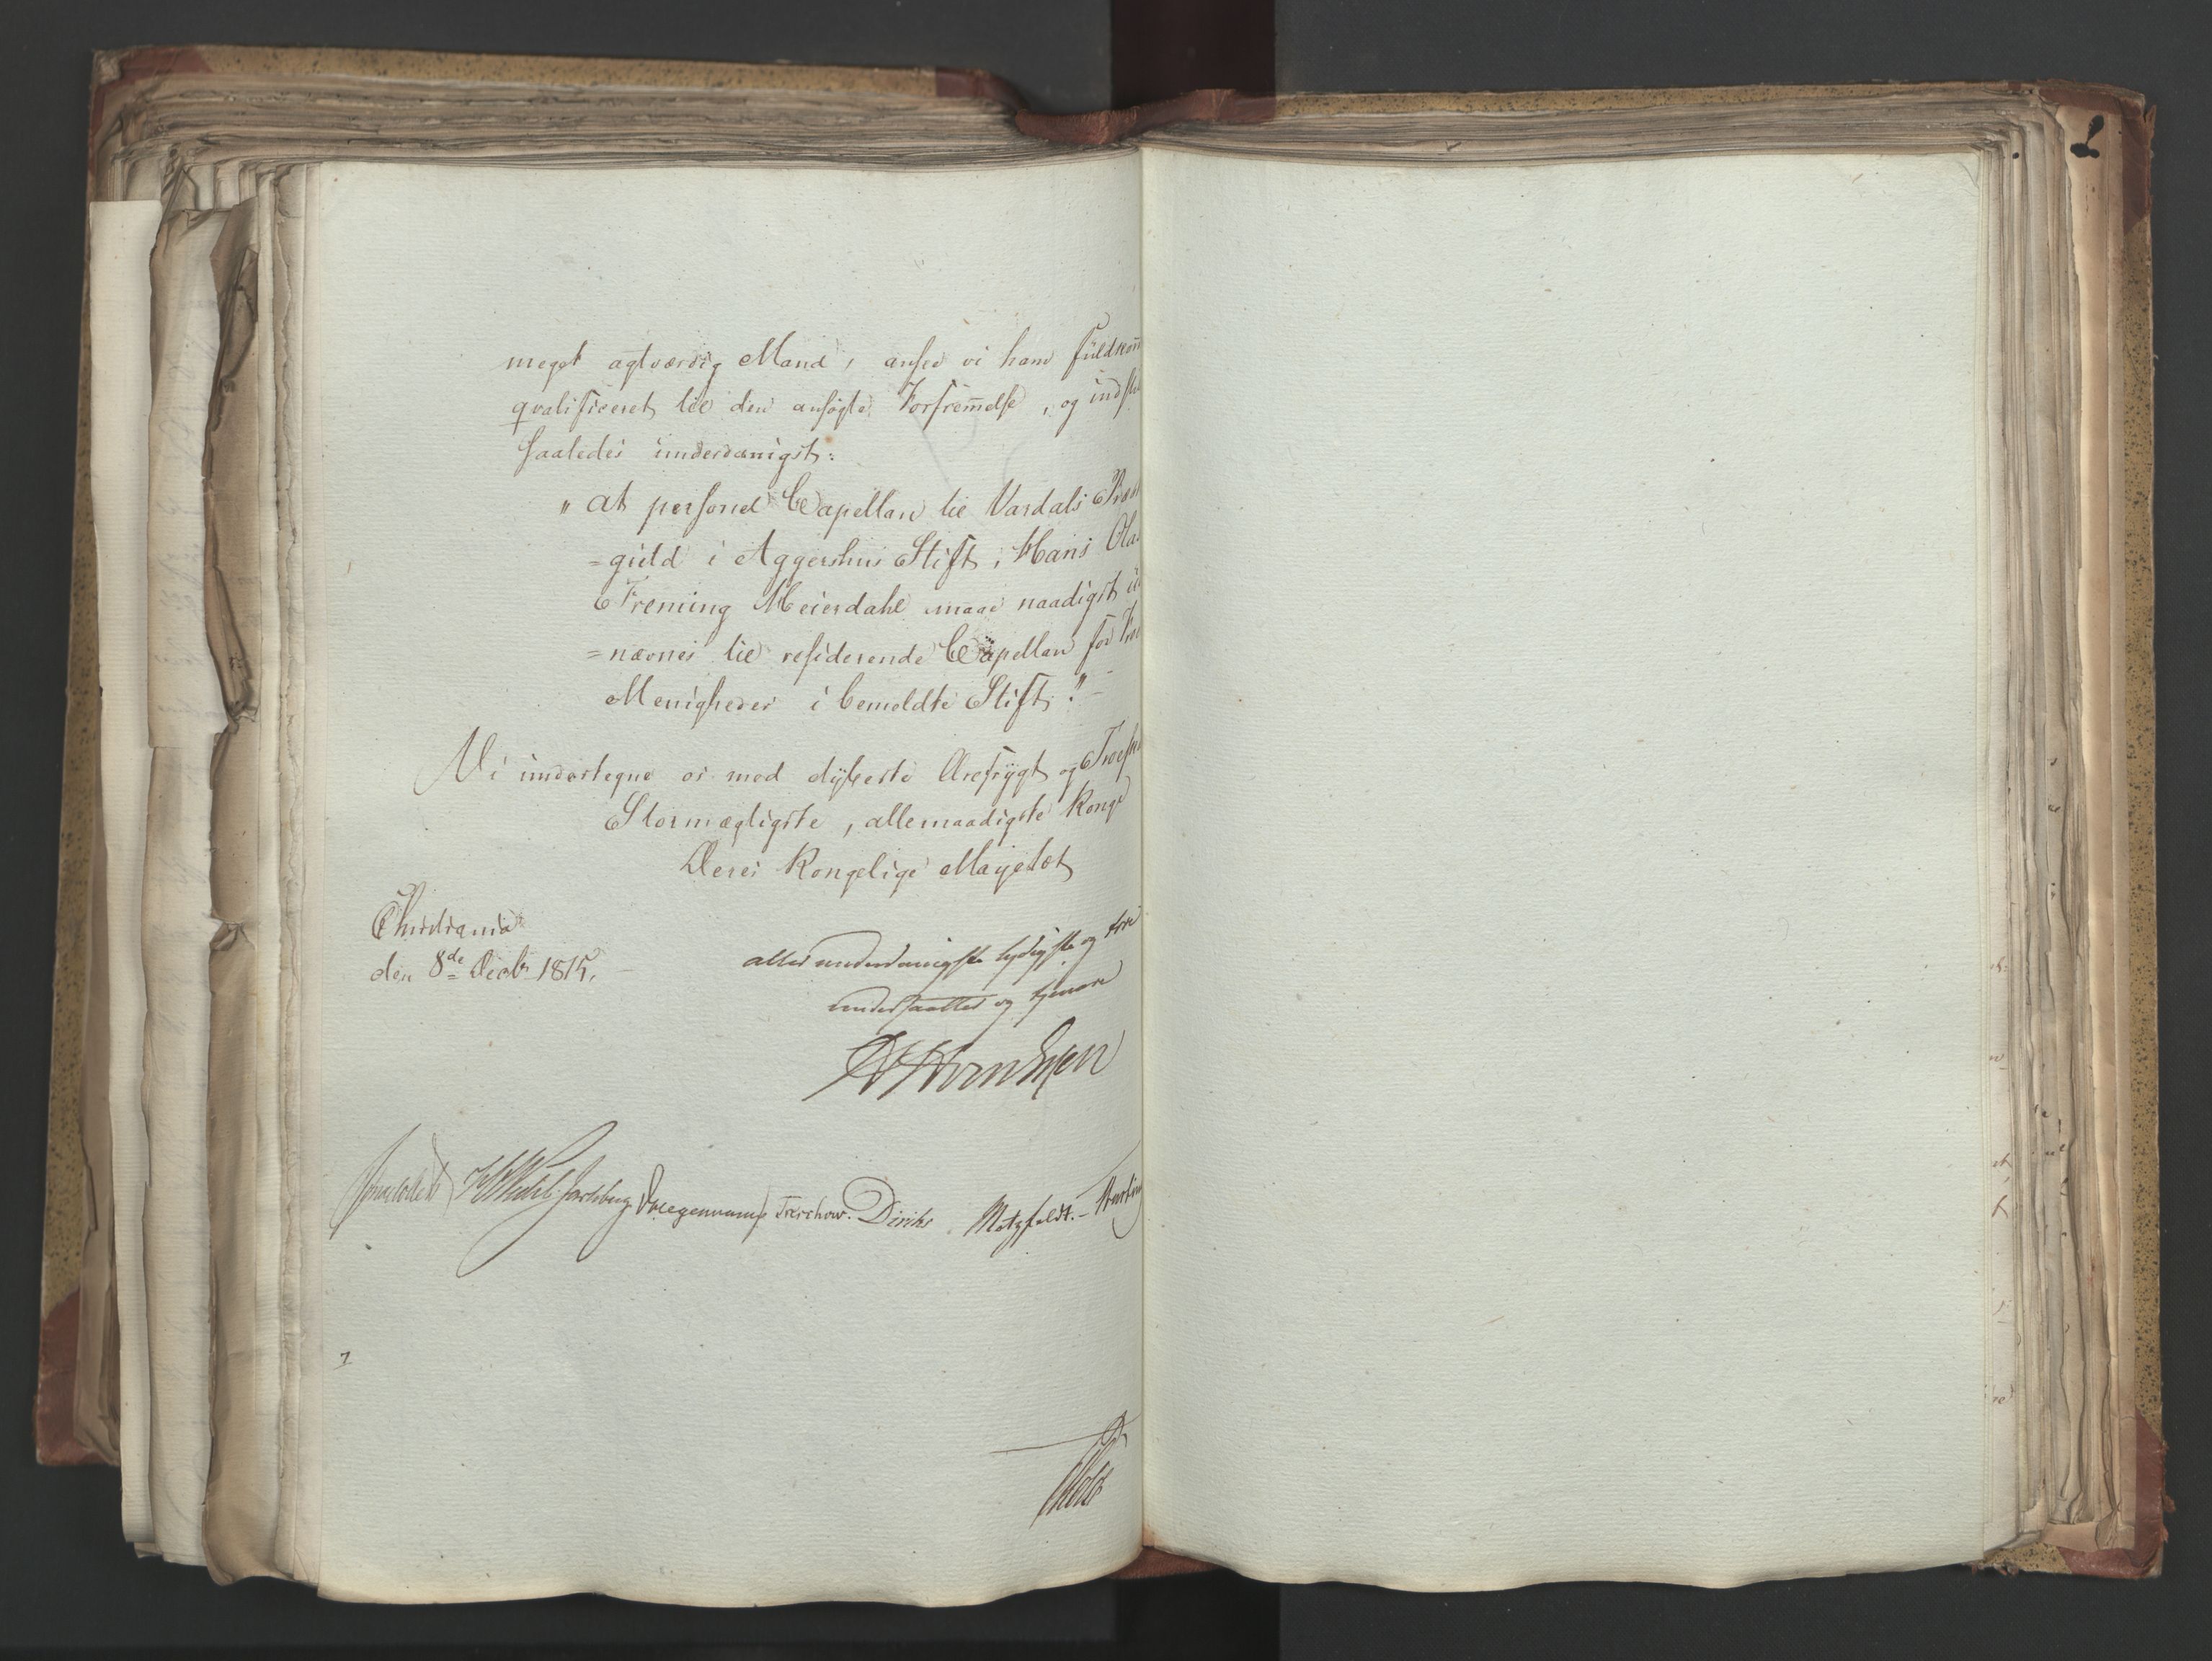 meget agtværdig Mand, ansee vi ham fuldkom̅
qvalificeret til den ansøgte Forfrem̅else, og indst
saaledes underdanigst:
"at personel Capellan til Vardals Præst
=gield i Aggershus Stift, Hans Ola
Freming Meierdahl maae naadigst ud
=nævnes til residerende Capellan for
Menigheder i bemeldte Stift."
Vi undertegne os med dybeste Ærefrygt og Troesk
Stormægtigste, allernaadigste Konge
Deres Kongelige Majestæt
Christiania
den 8de Decbr 1815.
allerunderdanigste lydigste og troe
undersaatter og tjenere
Sommerhielm HWedel Jarlsberg Krieg Treschow. Diriks Motzfeldt. -
7
Holst